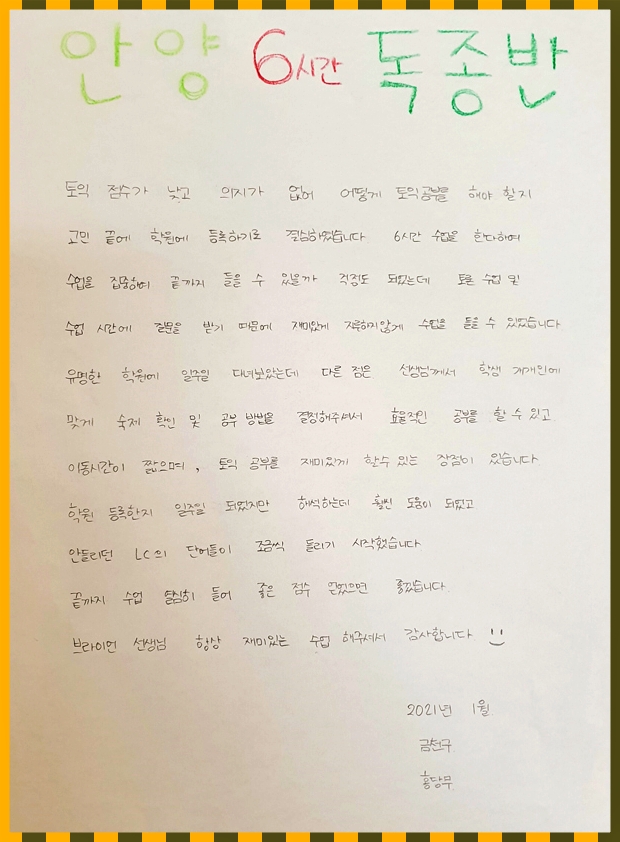 안양 6시간 독종반
토익 점수가 낮고 의지가 없어 어떻게 토익공부를 해야 할지
고민 끝에 학원에 등록하기로 결심하였습니다 6시간 수업을 한다하여
수업을 집중하며 끝까지 들을 수 있을까 걱정도 되었는데 토론 수업 및
수업 시간에 질문을 받기 때문에 재미있게 지루하지않게 수업을 들을 수 있었습니다
유명한 학원에 일주일 다녀보았는데 다른 점은 선생님께서 학생 개개인에
맞게 숙제 확인 및 공부 방법을 결정해주셔서 효율적인 공부를 할 수 있고
이동시간이 짧으며, 토익 공부를 재미있게 할수 있는 장점이 있습니다
학원 등록한지 일주일 되었지만 해석하는데 훨씬 도움이 되었고
안들리던 LC의 단어들이 조금씩 들리기 시작했습니다
끝까지 수업 열심히 들어 좋은 점수 얻었으면 좋겠습니다.
브라이언 선생님 항상 재미있는 수업 해주셔서 감사합니다
2021년 1월
금천구
홍당무